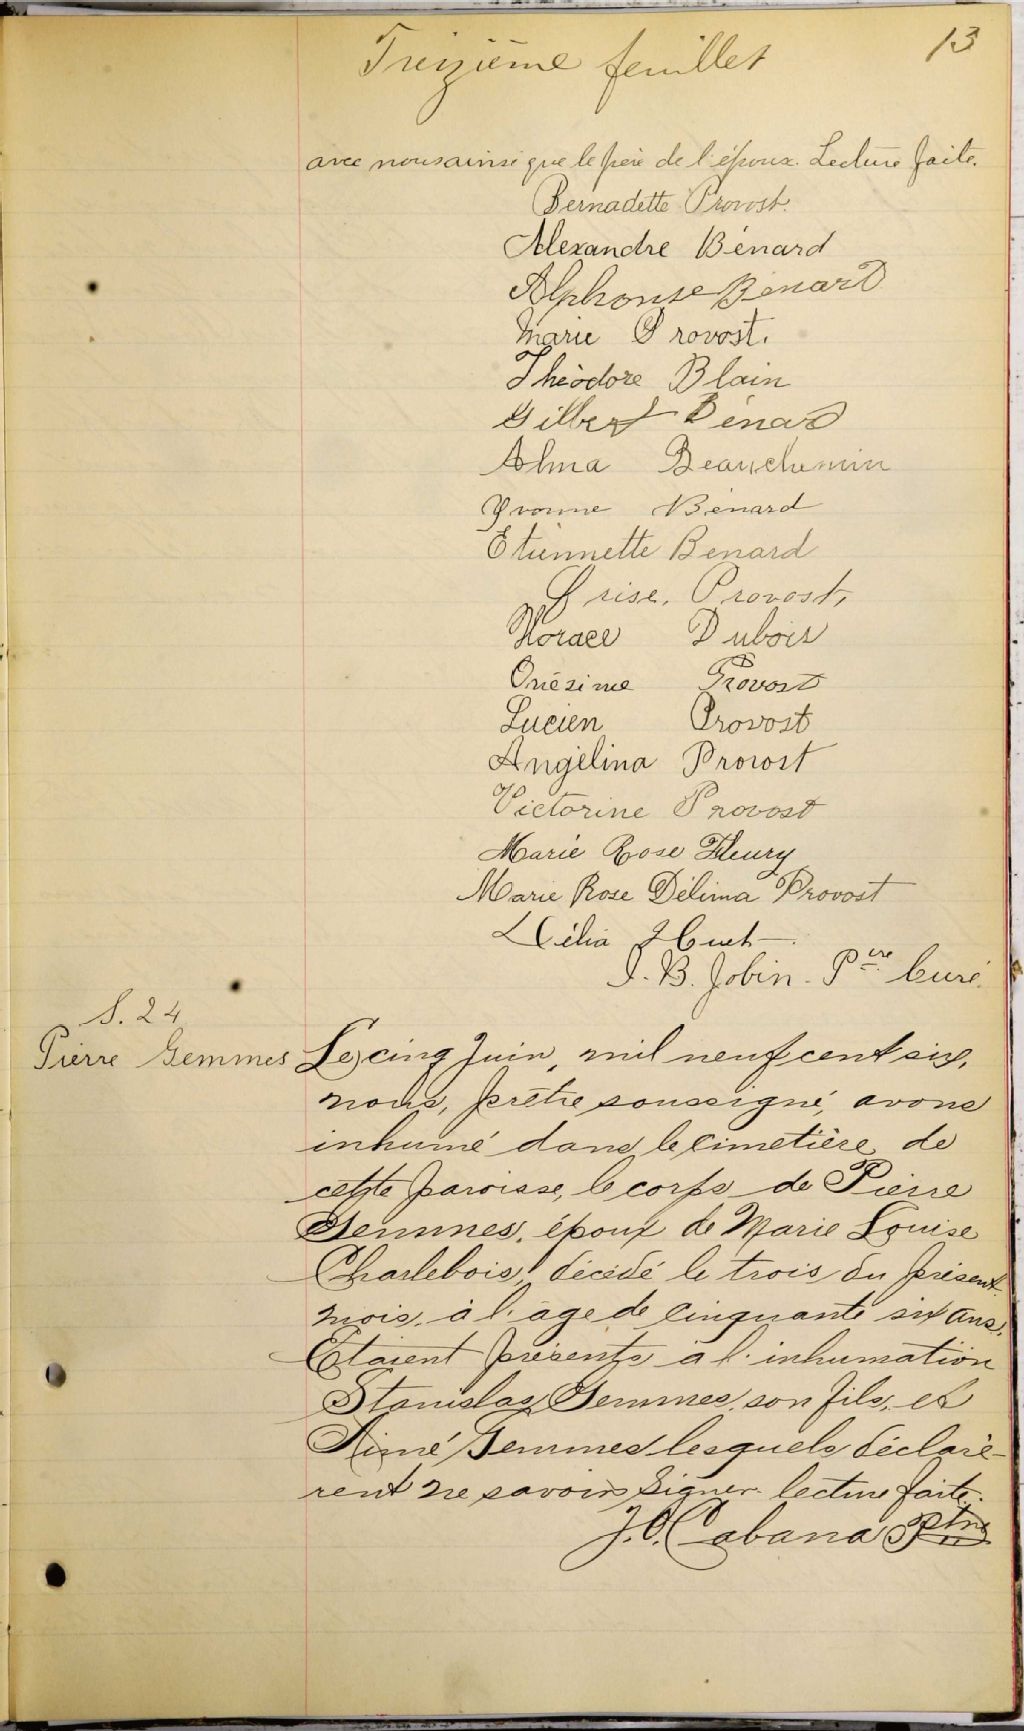 Treizième feuillet
13
avec nous ainsi que le père de l'époux. Lecture faite.
Bernadette Provost.
Alexandre Bénard
Alphonse Bénard
Marie Provost.
Théodore Blain
Gilbert Bénard
Alma Beauchemin
Yvonne Bénard
Etiennette Benard
Provost,
Horace Dubois
Onésime Provost
Lucien Provost
Angélina Provost
Victorine Provost
Marie Rose Fleury
Marie Rose Délima Provost
Délia Huet
J. B. Jobin. Ptre Curé.
S. 24
Pierre Gemmes
Le cinq Juin, mil neuf cent six,
nous, prêtre soussigné, avons
inhumé dans le cimetière de
cette paroisse, le corps de Pierre
Gemmes, époux de Marie Louise
Charlebois, décédé le trois du présent
mois, à l'âge de cinquante six ans.
Etaient présents à l'inhumation
Stanislas Gemmes, son fils, et
Aimé Gemmes lesquels déclarè-
rent ne savoir signer. lecture faite.
J. O. Cabana Ptre